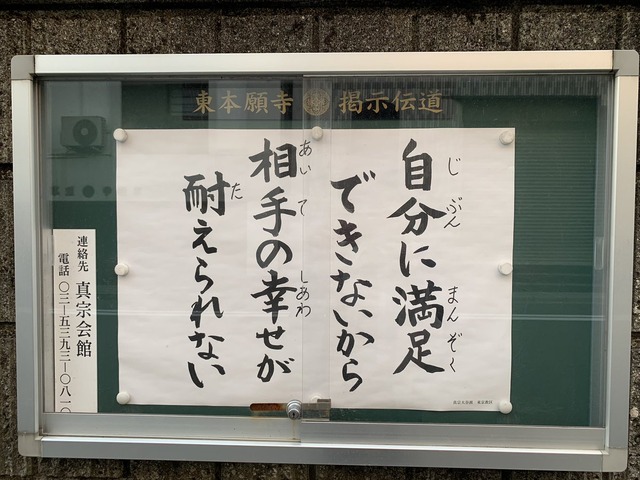 東本願寺 掲示伝道
じ ぶん まん ぞく
自分に満足
できないから
あい て しあわ
相手の幸せが
た
耐えられない
連絡先 真宗会館
電話 〇三―五三九三―〇八一〇